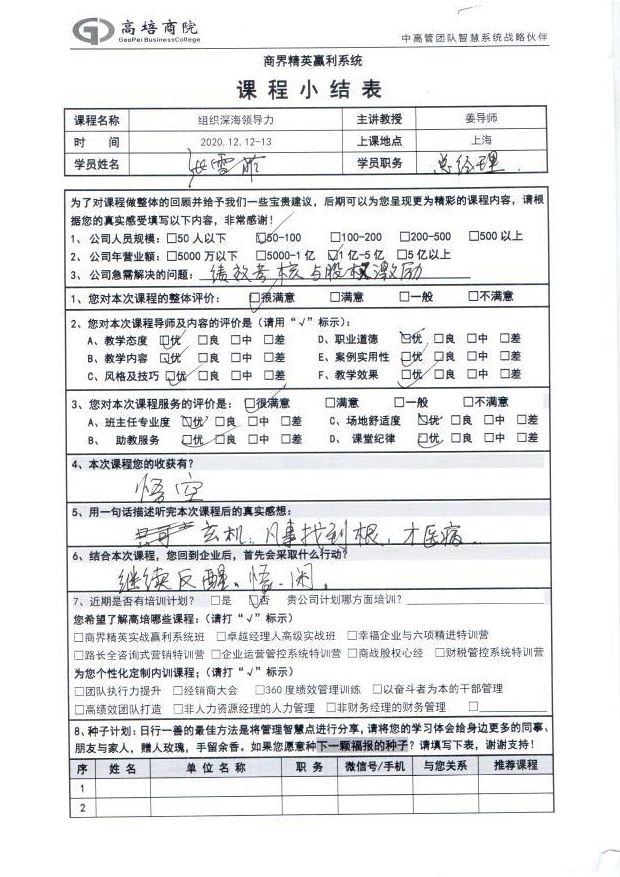 高培商院
GaoPei BusinessCollege
中高管团队智慧系统战略伙伴
商界精英赢利系统
课程小结表
课程名称 组织深海领导力 主讲教授 姜导师
时 间 2020.12.12-13 上课地点 上海
学员姓名 学员职务 总经理.
为了对课程做整体的回顾并给予我们一些宝贵建议，后期可以为您呈现更为精彩的课程内容，请根
据您的真实感受填写以下内容，非常感谢！
1、公司人员规模：□50人以下 ☑50-100 □100-200 □200-500 □500以上
2、公司年营业额：□5000万以下 □5000-1亿 ☑1亿-5亿 □5亿以上
3、公司急需解决的问题：绩效考核与股权激励
1、您对本次课程的整体评价： ☑很满意 □满意 □一般 □不满意
2、您对本次课程导师及内容的评价是（请用“√”标示）：
A、教学态度 ☑优 □良 □中 □差 D、职业道德 ☑优 □良 □中 □差
B、教学内容 ☑优 □良 □中 □差 E、案例实用性 ☑优 □良 □中 □差
C、风格及技巧 ☑优 □良 □中 □差 F、教学效果 ☑优 □良 □中 □差
3、您对本次课程服务的评价是： ☑很满意 □满意 □一般 □不满意
A、班主任专业度 ☑优 □良 □中 □差 C、场地舒适度 ☑优 □良 □中 □差
B、 助教服务 ☑优 □良 □中 □差 D、 课堂纪律 ☑优 □良 □中 □差
4、本次课程您的收获有？
悟空
5、用一句话描述听完本次课程后的真实感想：
玄机，凡事找到根，才医病
6、结合本次课程，您回到企业后，首先会采取什么行动？
继续反醒、悟、闲.
7、近期是否有培训计划？ □是 ☑否 贵公司计划哪方面培训？
您希望了解高培哪些课程：（请打“√”标示）
□商界精英实战赢利系统班 □卓越经理人高级实战班 □幸福企业与六项精进特训营
□路长全咨询式营销特训营 □企业运营管控系统特训营 □商战股权心经 □财税管控系统特训营
为您个性化定制内训课程；（请打“√”标示）
□团队执行力提升 □经销商大会 □360度绩效管理训练 □以奋斗者为本的干部管理
□高绩效团队打造 □非人力资源经理的人力管理 □非财务经理的财务管理 □
8、种子计划：日行一善的最佳方法是将管理智慧点进行分享，请将您的学习体会给身边更多的同事、
朋友与家人，赠人玫瑰，手留余香。如果您愿意种下一颗福报的种子？请填写下表，谢谢支持！
序 姓名 单位名称 职务 微信号/手机 与您关系 推荐课程
1
2